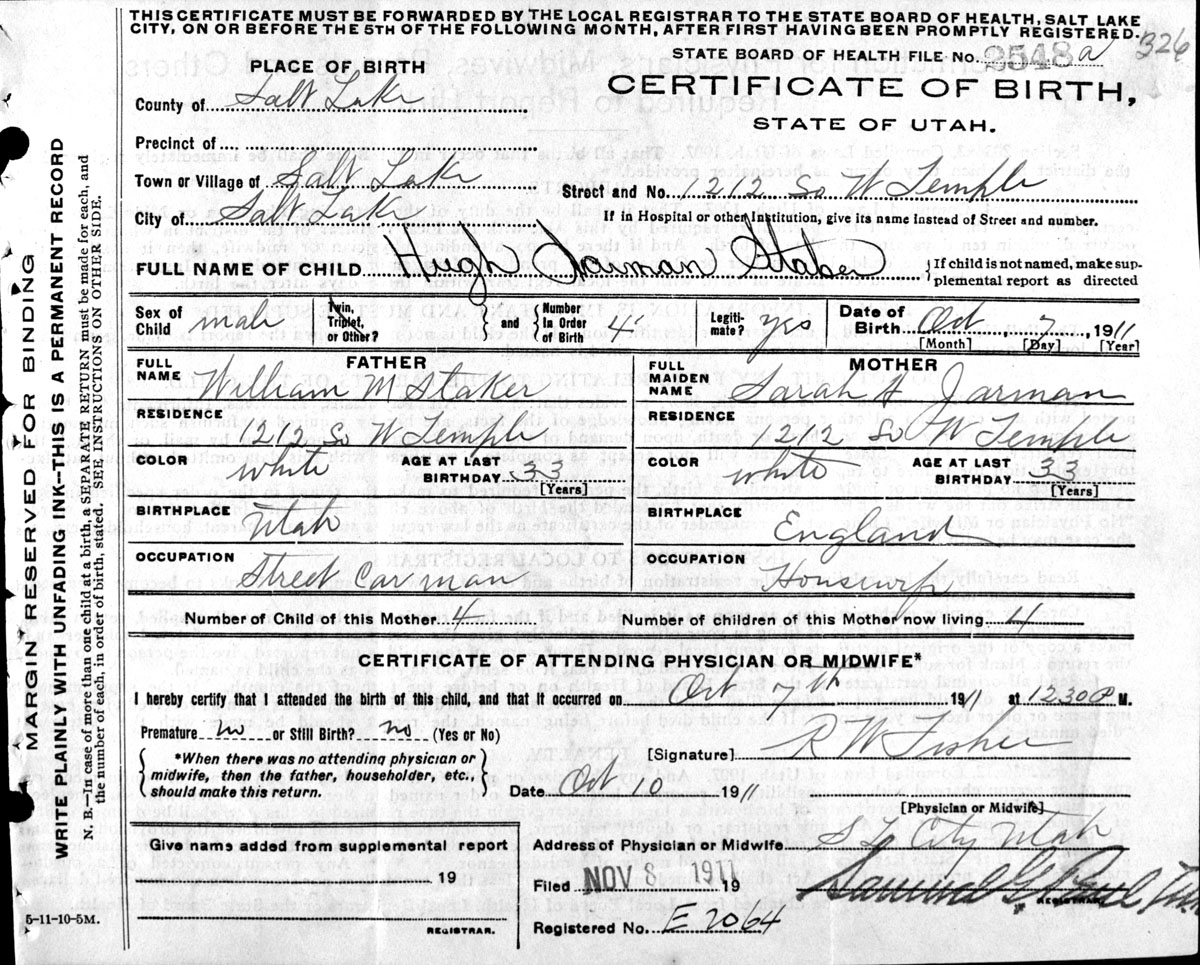 THIS CERTIFICATE MUST BE FORWARDED BY THE LOCAL REGISTRAR TO THE STATE BOARD OF HEALTH, SALT LAKE
CITY, ON OR BEFORE THE 5TH OF THE FOLLOWING MONTH, AFTER FIRST HAVING BEEN PROMPTLY REGISTERED.
326
STATE BOARD OF HEALTH FILE No. 3548 a
PLACE OF BIRTH
CERTIFICATE OF BIRTH,
STATE OF UTAH.
County of Salt Lake
Precinct of
Town or Village of Salt Lake
Street and No. 1212 So W Temple
City of Salt Lake
If in Hospital or other Institution, give its name instead of Street and number.
FULL NAME OF CHILD Hugh Jarman Staker
{If child is not named, make sup-
plemental report as directed
Sex of Child male
Twin, Triplet, or Other?
and
Number In Order of Birth 4
Legiti- mate? yes
Date of Birth Oct 7 1911
[Month] [Day] [Year]
FATHER
FULL NAME William M Staker
RESIDENCE
1212 So W Temple
COLOR white
AGE AT LAST BIRTHDAY 33
[Years]
BIRTHPLACE
Utah
OCCUPATION
Street Carman
MOTHER
FULL MAIDEN NAME Sarah A Jarman
RESIDENCE
1212 So W Temple
COLOR white
AGE AT LAST BIRTHDAY 33
[Years]
BIRTHPLACE
England
OCCUPATION
Housewife
Number of Child of this Mother 4
Number of children of this Mother now living 4
CERTIFICATE OF ATTENDING PHYSICIAN OR MIDWIFE*
I hereby certify that I attended the birth of this child, and that it occurred on Oct 7th 1911 at 12.30 P M.
Premature no or Still Birth? no (Yes or No)
*When there was no attending physician or
midwife, then the father, householder, etc.,
should make this return.
[Signature] R W Fisher
Date Oct 10 1911
[Physician or Midwife]
Give name added from supplemental report
19
REGISTRAR.
5-11-10-5M.
Address of Physician or Midwife S L City Utah
Filed NOV 8 1911 19
REGISTRAR.
Registered No. E 2064
MARGIN RESERVED FOR BINDING
WRITE PLAINLY WITH UNFADING INK—THIS IS A PERMANENT RECORD
N. B.—In case of more than one child at a birth, a SEPARATE RETURN must be made for each, and
the number of each, in order of birth, stated. SEE INSTRUCTIONS ON OTHER SIDE.